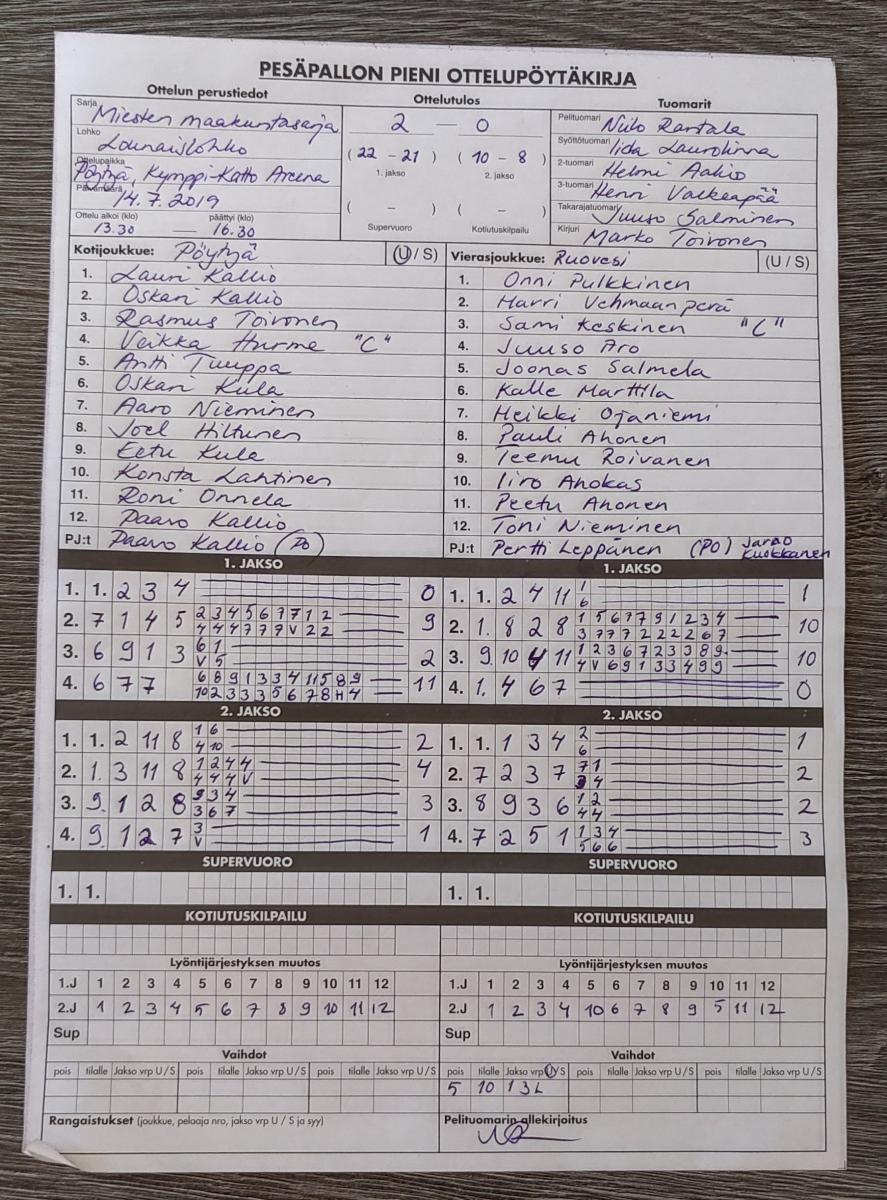 PESÄPALLON PIENI OTTELUPÖYTÄKIRJA
Ottelun perustiedot Ottelutulos Tuomarit
Sarja Miesten maakuntasarja
Lohko Lounaislohko
Ottelupaikka Pöytyä, Kymppi-Katto Areena
Päivämäärä 14.7.2019
Ottelu alkoi (klo) päättyi (klo)
13.30 — 16.30
2 — 0
(22 - 21) (10 - 8)
1. jakso 2. jakso
( - ) ( - )
Supervuoro Kotiutuskilpailu
Pelituomari Niilo Rantala
Syöttötuomari Iida Laurokinna
2-tuomari Helmi Aakio
3-tuomari Henri Valkeapää
Takarajatuomari Juuso Salminen
Kirjuri Marko Toivonen
Kotijoukkue: Pöytyä (U / S) Vierasjoukkue: Ruovesi (U / S)
1. Lauri Kallio 1. Onni Pulkkinen
2. Oskari Kallio 2. Harri Vehmaanperä
3. Rasmus Toivonen 3. Sami Keskinen "C"
4. Veikka Hurme "C" 4. Juuso Aro
5. Antti Tuuppa 5. Joonas Salmela
6. Oskari Kula 6. Kalle Marttila
7. Aaro Nieminen 7. Heikki Ojaniemi
8. Joel Hiltunen 8. Pauli Ahonen
9. Eetu Kula 9. Teemu Roivanen
10. Konsta Lahtinen 10. Iiro Ahokas
11. Roni Onnela 11. Peetu Ahonen
12. Paavo Kallio 12. Toni Nieminen
PJ:t Paavo Kallio (PO) PJ:t Pertti Leppänen (PO) Jarno Kuokkanen
1. JAKSO 1. JAKSO
1. 1. 2 3 4 0 1. 1. 2 4 11 1 1
6
2. 7 1 4 5 2 3 4 5 6 7 7 1 2 9 2. 1. 8 2 8 1 5 6 7 7 9 1 2 3 4 10
4 4 4 7 7 7 V 2 2 3 7 7 7 2 2 2 2 6 7
3. 6 9 1 3 6 1 2 3. 9. 10 4 11 1 2 3 6 7 2 3 3 8 9 10
V 5 4 V 6 9 1 3 3 4 9 9
4. 6 7 7 6 8 9 1 3 3 4 11 5 8 9 11 4. 1. 4 6 7 0
10 2 3 3 3 5 6 7 8 H 4
2. JAKSO 2. JAKSO
1. 1. 2 11 8 1 6 2 1. 1. 1 3 4 2 1
4 10 6
2. 1. 3 11 8 1 2 4 4 4 2. 7 2 3 7 7 1 2
4 4 4 V 3 4
3. 9. 1 2 8 9 3 4 3 3. 8 9 3 6 1 2 2
3 6 7 4 4
4. 9. 1 2 7 3 1 4. 7 2 5 1 1 3 4 3
V 5 6 6
SUPERVUORO SUPERVUORO
1. 1. 1. 1.
KOTIUTUSKILPAILU KOTIUTUSKILPAILU
Lyöntijärjestyksen muutos Lyöntijärjestyksen muutos
1.J 1 2 3 4 5 6 7 8 9 10 11 12 1.J 1 2 3 4 5 6 7 8 9 10 11 12
2.J 1 2 3 4 5 6 7 8 9 10 11 12 2.J 1 2 3 4 10 6 7 8 9 5 11 12
Sup Sup
Vaihdot Vaihdot
pois tilalle Jakso vrp U / S pois tilalle Jakso vrp U / S pois tilalle Jakso vrp U / S pois tilalle Jakso vrp U/S pois tilalle Jakso vrp U / S pois tilalle Jakso vrp U / S
5 10 1 3 L
Rangaistukset (joukkue, pelaaja nro, jakso vrp U / S ja syy) Pelituomarin allekirjoitus